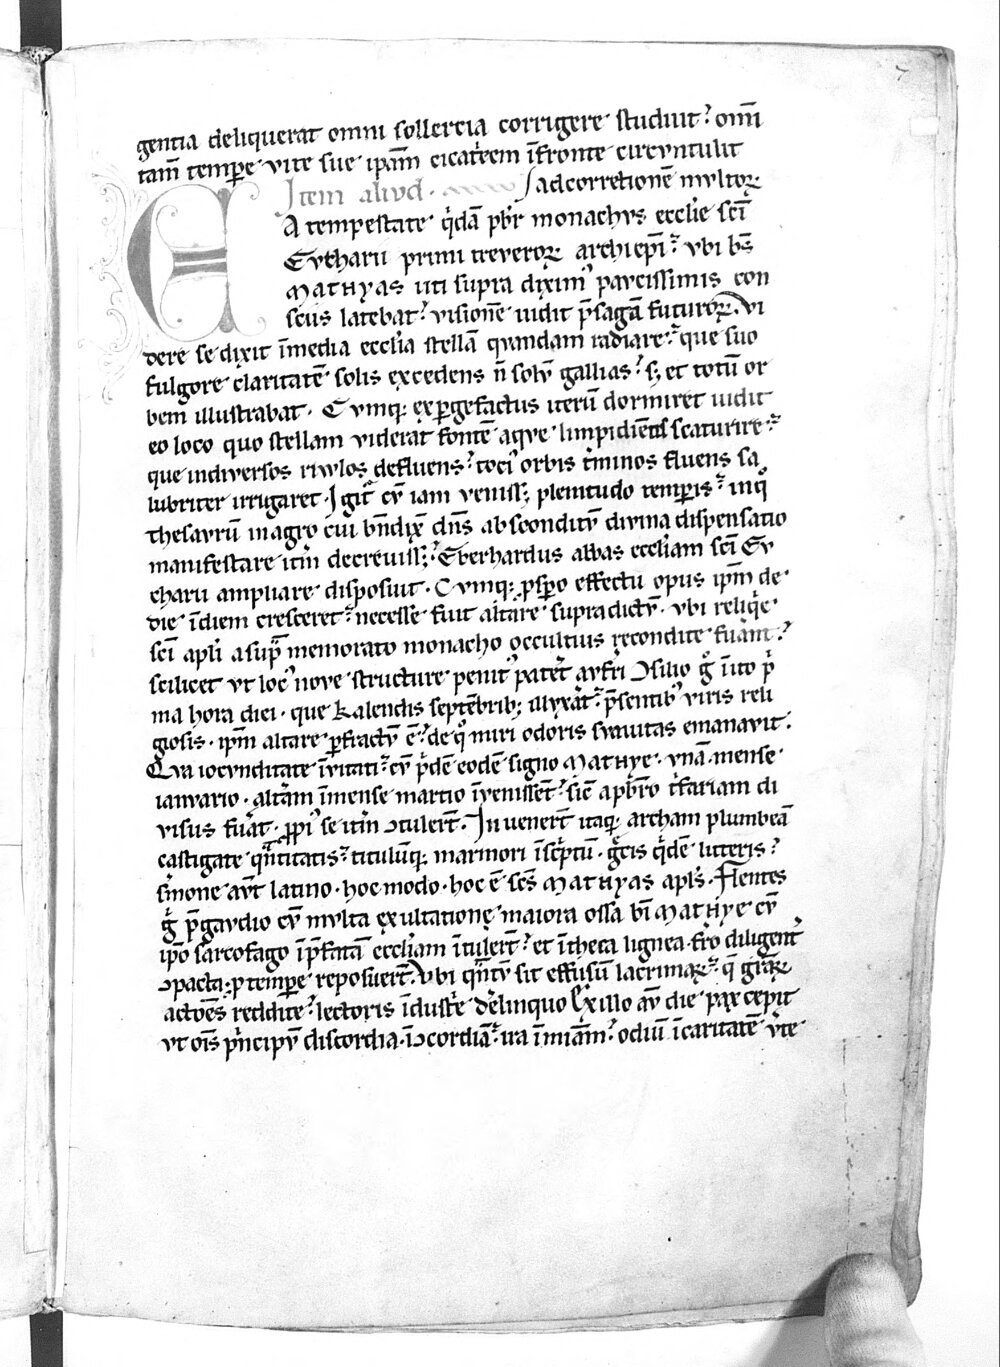 7
gentia deliquerat omni sollercia corrigere studuit? om̄i
tam̄ temꝑe vite sue ipam̄ cicat᷑cem īfronte circvntulit
Item aliud. ad corretionē mvltoꝝ
EA tempestate q̇dā pbr̄ monachvs ecclie sc̄i
Evcharii primi treveroꝝ archiepi᷑ vbi bs̄
MATHYAS uti supra diximꝰ parcissimis con
scius latebat᷑ visionē uidit p̄sagā futuroꝝ. vi
dere se dixit īmedia ecclia stellā qvandam radiare᷑ que suo
fulgore claritatē solis excedens n̄ solv̄ gallias᷑ sꝫ et totū or
bem illustrabat. Cvmqꝫ exꝑgefactus iterū dormiret uidit
eo loco quo stellam viderat fontē aqve limpidien̄tis scaturire᷑
que indiversos rivvlos defluens᷑ tociꝰ orbis t᷑minos fluens sa
lubriter irrigaret. Igit᷑ cv̄ iam venissꝫ plenitudo temꝑis᷑ inqͦ
thesavrū inagro cui bn̄dix̄ dn̄s absconditv̄ divina dispensatio
manifestare itm̄ decreuissꝫ᷑ Eberhardus abbas eccliam sc̄i Ev
charii ampliare disposuit. Cvmqꝫ ꝓsꝑo effectu opus ipm̄ de
die īdiem cresceret᷑ necesse fuit altare supradictv̄. vbi reliq̇e
sc̄i apli asup̄ memorato monacho occultius recondite fuānt᷑
scilicet vt locꝰ nove structure penitꝰ patet᷑ avfri ↄsilio g̊ īito p̄
ma hora diei. que kalendis septēbribꝫ illvxāt᷑ p̄sentibꝰ viris reli
giosis. ipm̄ altare ꝑfractv̄ ē᷑ de qͦ miri odoris svavitas emanavit.
Qva iocvnditate īvitati᷑ cv̄ p̄dē eodē signo MATHYE. vnā mense
ianvario. alt᷑am īmense martio īvenissēt᷑ sic̄ apbr̄o t᷑fariam di
visus fuāt. ꝓpiꝰ se itm̄ ↄtulert̄. Invenert̄ itaqꝫ archam plumbeā
castigate qn̄titatis᷑ titulūqꝫ marmori īscptū. g᷑cis q̇dē litteris᷑
s᷑mone avt̄ latino. hoc modo. hoc ē sc̄s MATHYAS apls̄. Flentes
g̊ p̄gavdio cv̄ mvlta exultatione maiora ossa bi MATHYE cv̄
ipo sarcofago īp̄fatā eccliam ītulert̄᷑ et ītheca lignea. fr̄o diligent᷑
ↄpacta. ꝓ temꝑe reposuert̄. vbi qn̄tv̄ sit effusū lacrimaꝝ᷑ q̄ gr̄aꝝ
actōēs reddite᷑ lectoris īdust᷑e delinquo
vt ōīs p̄ncipv̄ discordia. īↄcordiā᷑ ira īmiam̄᷑ odiū īcaritatē v᷑te